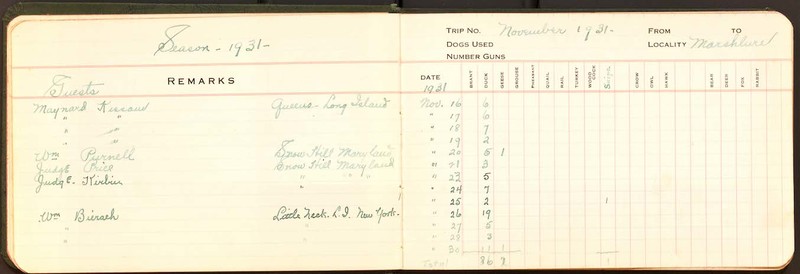 Season - 1931 -
REMARKS
Guests
Maynard Queens - Long Island
" "
" "
Wm Purnell Snow Hill Maryland
Judge Price Snow Hill Maryland
Judge. " "
Wm Little Neck. L.I. New York.
"
"
TRIP NO. November 1931 - FROM TO
DOGS USED LOCALITY
NUMBER GUNS
DATE BRANT DUCK GEESE GROUSE PHEASANT QUAIL RAIL TURKEY WOOD COCK CROW OWL HAWK BEAR DEER FOX RABBIT
1931
Nov. 16 6
" 17 6
" 18 7
" 19 2
" 20 5 1
" 21 3
" 5
" 24 7
" 25 2 1
" 26 19
" 27 5
"
" 1
Total 1